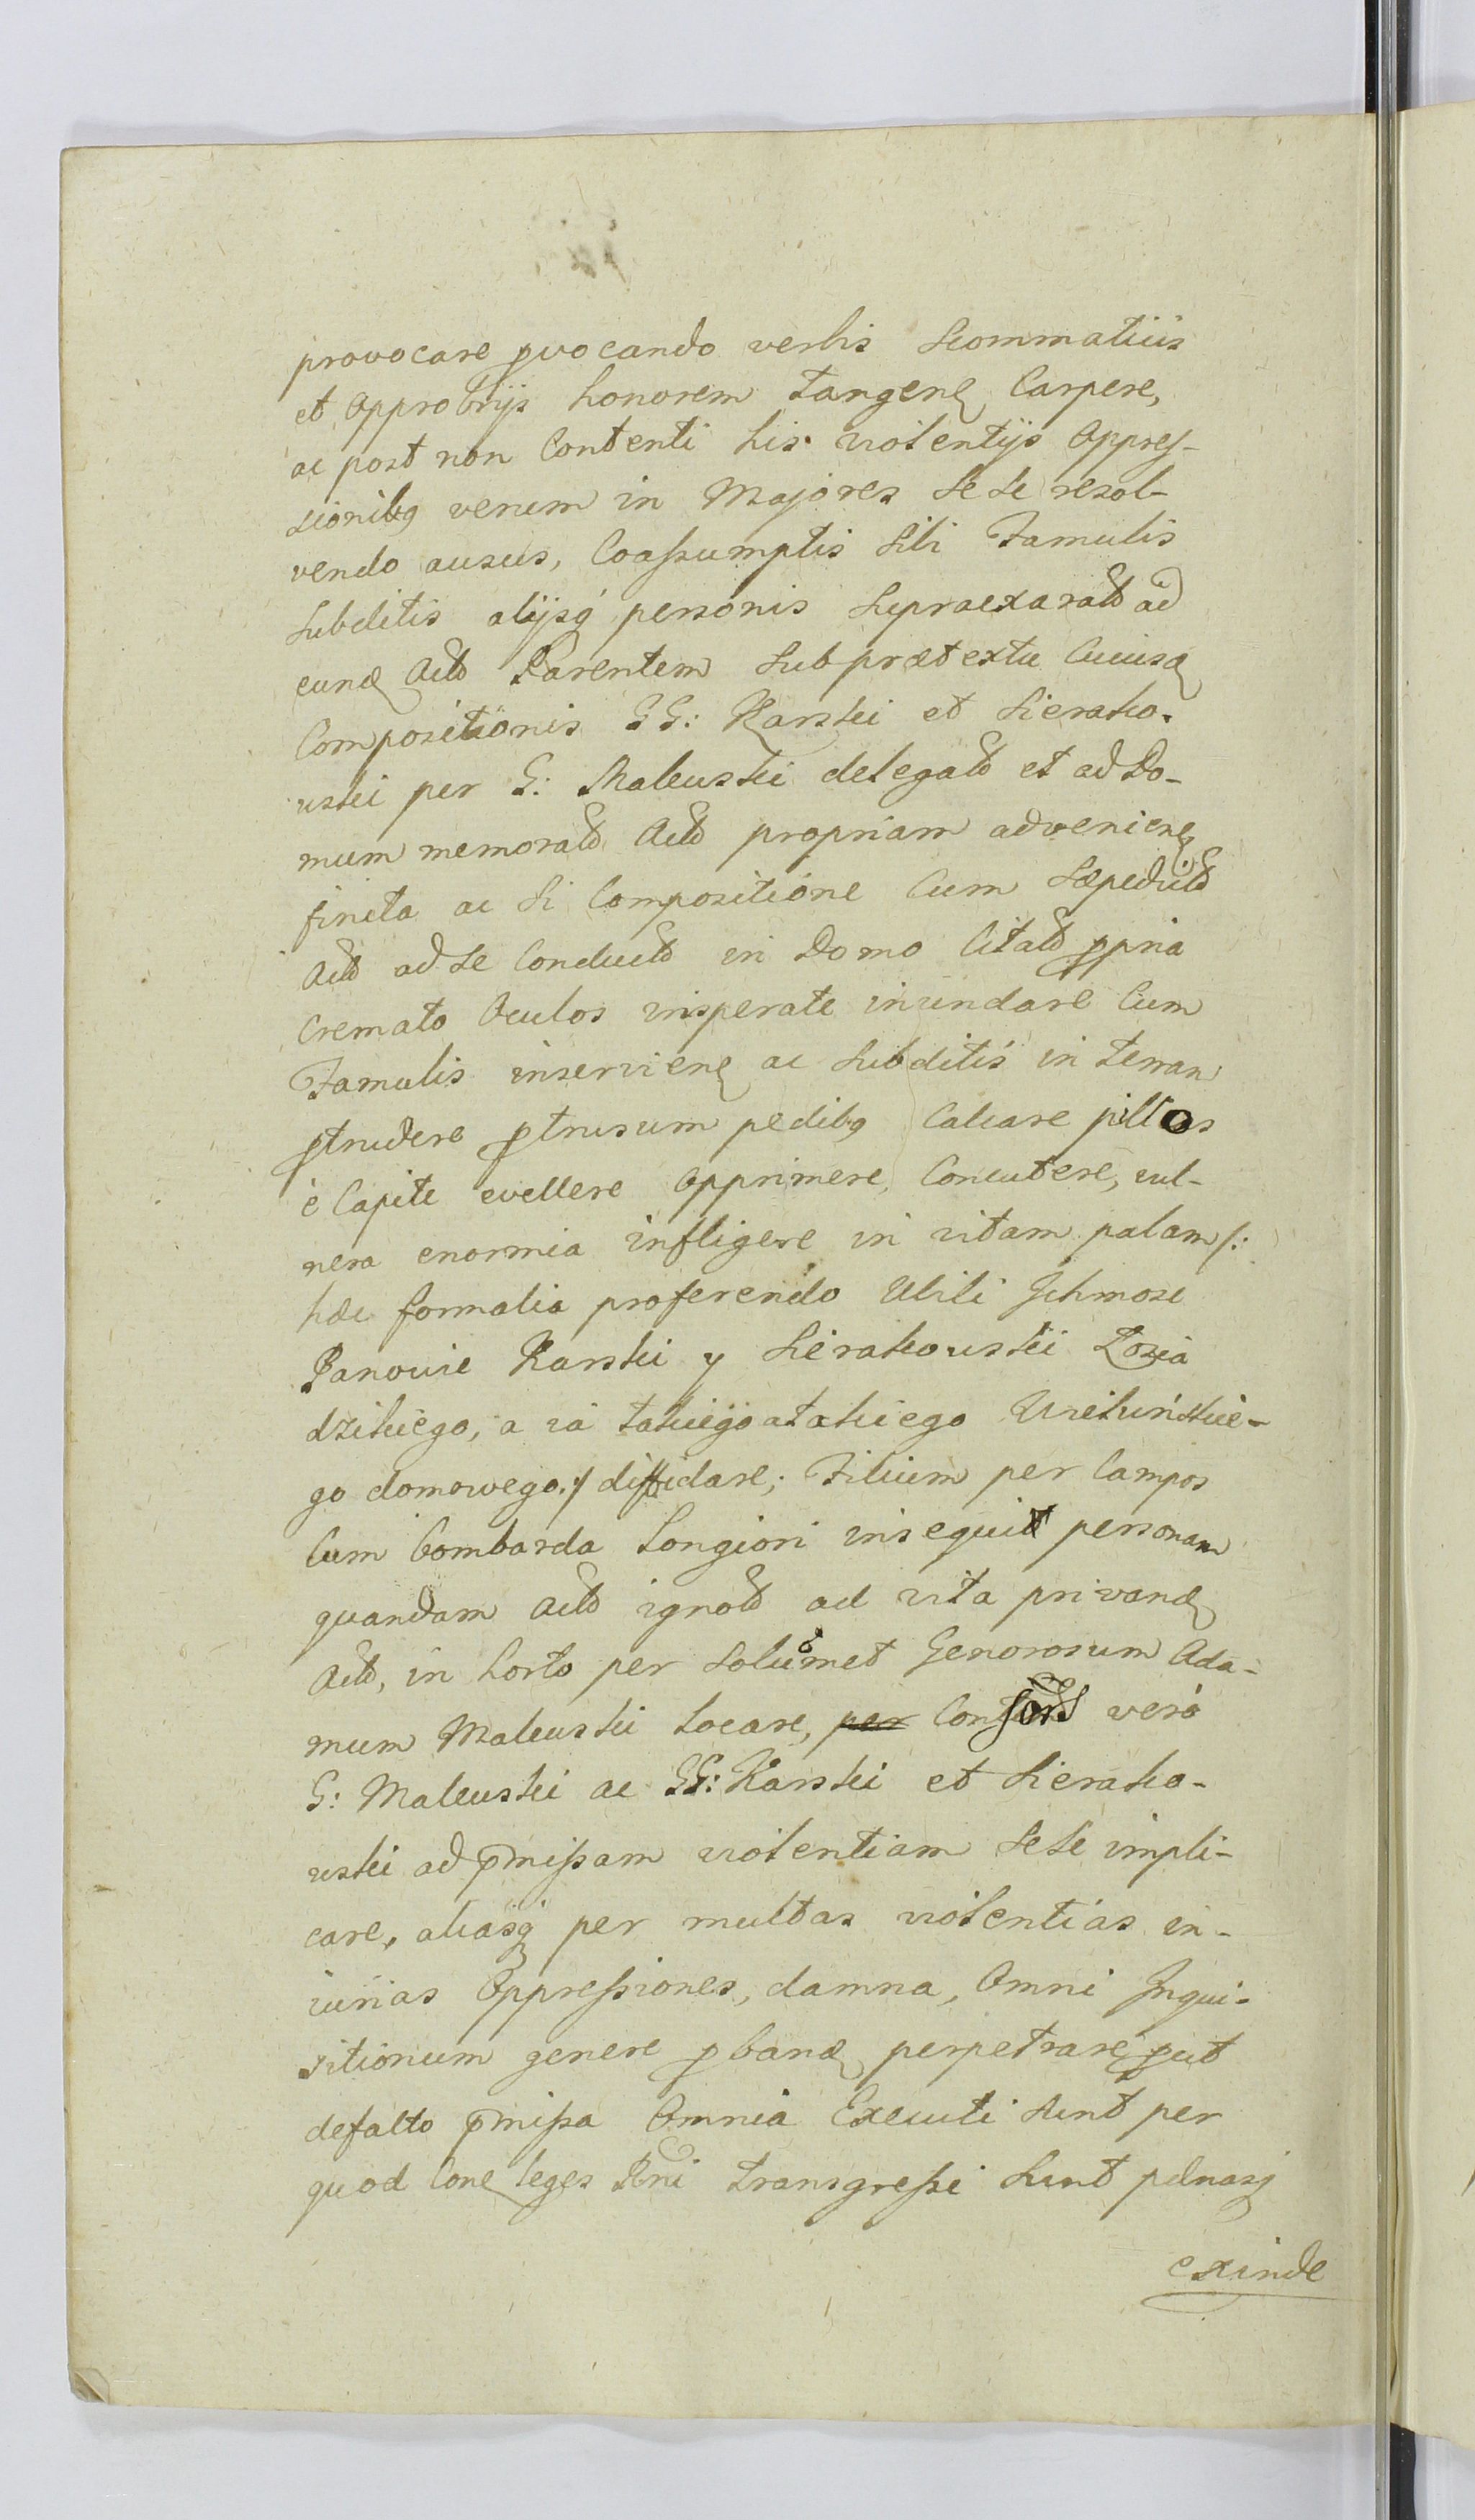 provocare ꝓvocando verbis Scommaticis
et opprobrijs honorem tangenꝭ Carpere,
ac post non Contenti his violentijs oppres-
sionibꝰ verum in Majores Sese resol-
vendo ausus, Coaſsumptis Sibi Famulis
Subditis alijsqꝫ personis Supraexarato ad
eundꝭ Acto Parentem Sub prætextu Cuiusdꝭ
Compositionis GG: Karski et Sierako-
wski per G: Malewski delegato et ad Do-
mum memorato Acto propriam advenienꝭ
finita ac Si Compositione Cum Sæpedicto
Acto ad Se Conducto in Domo Citato ꝓpria
Cremato Oculos insperate inundare Cum
Famulis inservienꝭ ac Subditis in terram
ꝓtrudere ꝓtrusum pedibꝰ Calcare pillos
è Capite evellere opprimere, Concutere, vul-
nera enormia infligere in vitam palam /:
hæc formalia proferendo Ubili Ichmosc
Panowie Karski y Sierakowski Kozła
dzikiego, a ia takiego a takiego Wieluńskie-
go domowego :/ diffidare; Filium per Campos
Cum bombarda Longiori insequi personam
quandam Acto ignoto ad vita privandꝭ
Acto, in horto per Solummet Generosum Ada-
mum Malewski Locare, per Consors vero
G: Malewski ac GG: Karski et Sierako-
wski ad p̄miſsam violentiam Sese impli-
care, aliasqꝫ per multas violentias in-
iurias Oppreſsiones, damna, Omni Inqui-
sitionum genere ꝓbandꝭ perpetrare ꝓut
defacto p̄miſsa Omnia Executi Sunt per
quod Conꝭ leges Rni transgreſsi Sunt pœnasqꝫ
exinde